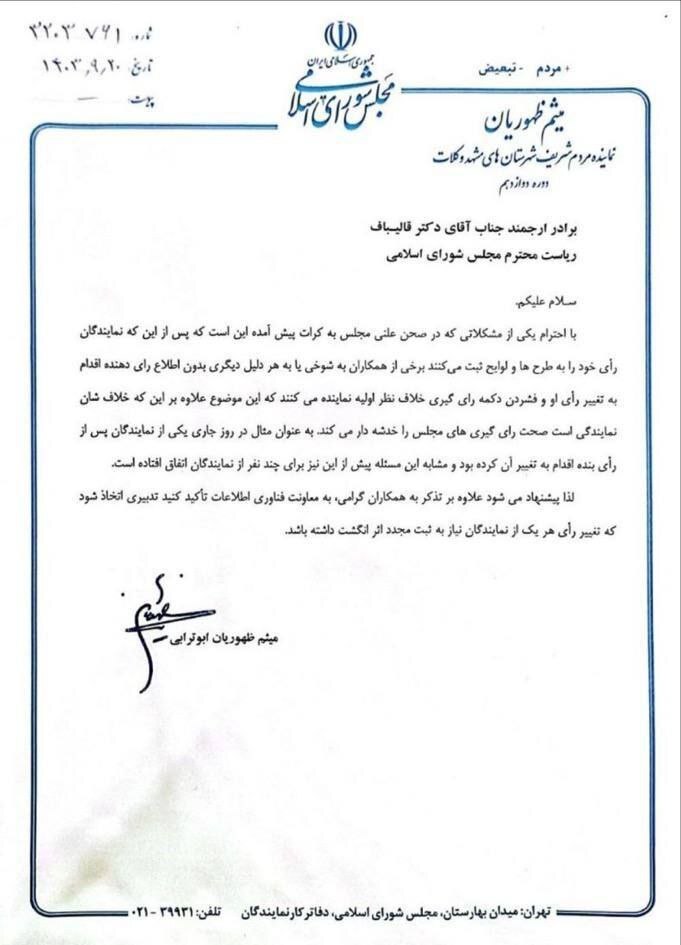 شماره: ۳۲۰۳_۷۶۱
تاریخ: ۱۴۰۳٫۹٫۲۰
پیوست: —
جمهوری اسلامی ایران
مجلس شورای اسلامی
+ مردم - تبعیض
میثم ظهوریان
نماینده مردم شریف شهرستان های مشهد و کلات
دوره دوازدهم
برادر ارجمند جناب آقای دکتر قالیباف
ریاست محترم مجلس شورای اسلامی
سلام علیکم.
با احترام یکی از مشکلاتی که در صحن علنی مجلس به کرات پیش آمده این است که پس از این که نمایندگان
رأی خود را به طرح ها و لوایح ثبت می‌کنند برخی از همکاران به شوخی یا به هر دلیل دیگری بدون اطلاع رای دهنده اقدام
به تغییر رأی او و فشردن دکمه رای گیری خلاف نظر اولیه نماینده می کنند که این موضوع علاوه بر این که خلاف شان
نمایندگی است صحت رای گیری های مجلس را خدشه دار می کند. به عنوان مثال در روز جاری یکی از نمایندگان پس از
رأی بنده اقدام به تغییر آن کرده بود و مشابه این مسئله پیش از این نیز برای چند نفر از نمایندگان اتفاق افتاده است.
لذا پیشنهاد می شود علاوه بر تذکر به همکاران گرامی، به معاونت فناوری اطلاعات تأکید کنید تدبیری اتخاذ شود
که تغییر رأی هر یک از نمایندگان نیاز به ثبت مجدد اثر انگشت داشته باشد.
میثم ظهوریان ابوترابی
تهران: میدان بهارستان، مجلس شورای اسلامی، دفاتر کار نمایندگان تلفن: ۳۹۹۳۱ - ۰۲۱